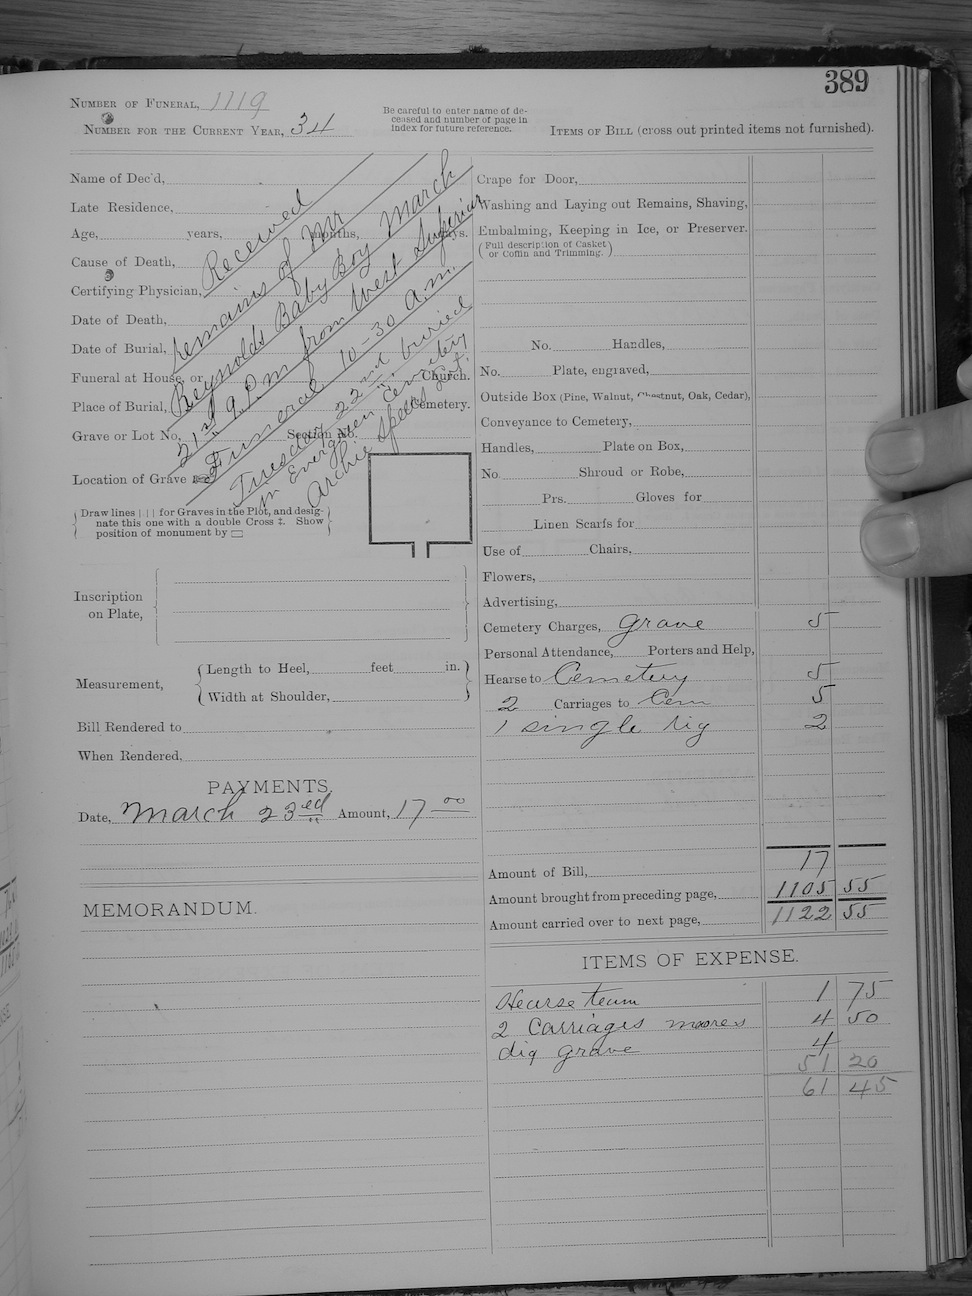 389
Number of Funeral, 1119
Number for the Current Year, 34
Be careful to enter name of de-
ceased and number of page in
index for future reference.
Items of Bill (cross out printed items not furnished).
Name of Dec'd,
Late Residence,
Age, years, months, days.
Cause of Death,
Certifying Physician,
Date of Death,
Date of Burial,
Funeral at House, or Church.
Place of Burial, Cemetery.
Grave or Lot No, Section No.
Location of Grave
Received
remains of Mr
Reynolds Baby Boy March
21st 9 P.m from West Superior
Funeral 10-30 a.m.
Tuesday 22nd buried
in Evergreen Cemetery
Archie
Draw lines | | | for Graves in the Plot, and desig-
nate this one with a double Cross ‡. Show
position of monument by ▭
Inscription
on Plate,
Measurement,
Length to Heel, feet in.
Width at Shoulder,
Bill Rendered to
When Rendered,
PAYMENTS.
Date, March 23ed Amount, 17 00
MEMORANDUM.
Crape for Door,
Washing and Laying out Remains, Shaving,
Embalming, Keeping in Ice, or Preserver.
(Full description of Casket
or Coffin and Trimming.)
No. Handles,
No. Plate, engraved,
Outside Box (Pine, Walnut, Chestnut, Oak, Cedar),
Conveyance to Cemetery,
Handles, Plate on Box,
No. Shroud or Robe,
Prs. Gloves for
Linen Scarfs for
Use of Chairs,
Flowers,
Advertising,
Cemetery Charges, grave 5
Personal Attendance, Porters and Help,
Hearse to Cemetery 5
2 Carriages to Cem 5
1 single rig 2
Amount of Bill, 17
Amount brought from preceding page, 1105 55
Amount carried over to next page, 1122 55
ITEMS OF EXPENSE.
Hearse team 1 75
2 Carriages moores 4 50
dig grave 4
51 20
61 45